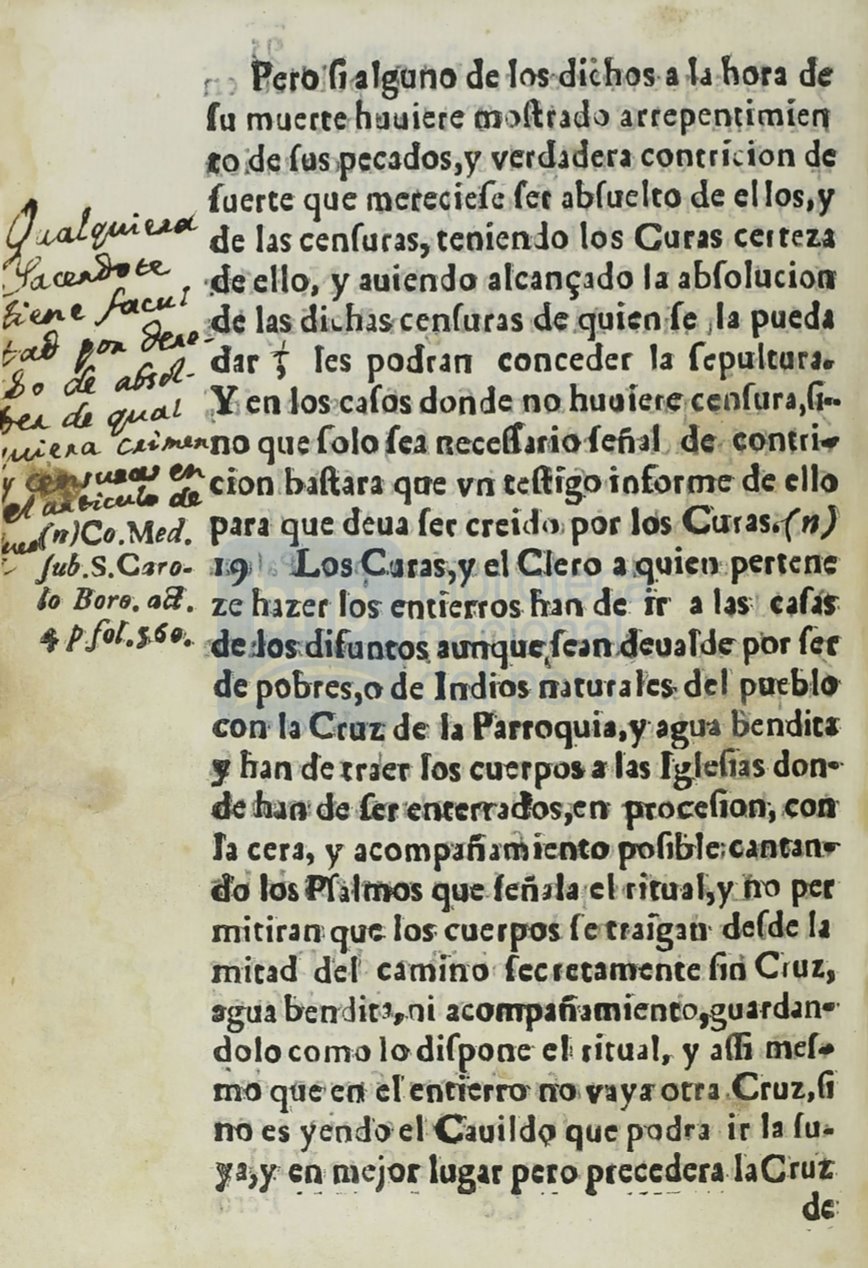 Pero ſi alguno de los dichos a la hora de
ſu muerte huuiere moſtrado arrepentimien
to de ſus pecados,y verdadera contricion de
ſuerte que merecieſe ſer abſuelto de ellos,y
de las cenſuras, teniendo los Curas certeza
de ello, y auiendo alcançado la abſolucion
de las dichas cenſuras de quien ſe la pueda
dar ⸸ les podran conceder la ſepultura.
Y en los caſos donde no huuiere cenſura,ſi-
no que ſolo ſea neceſſario ſeñal de contri-
cion baſtara que vn teſtigo informe de ello
para que deua ſer creido por los Curas.(n)
19 Los Curas,y el Clero a quien pertene
ze hazer los entierros han de ir a las caſas
de los difuntos aunque ſean deualde por ſer
de pobres,o de Indios naturales del pueblo
con la Cruz de la Parroquia,y agua bendita
y han de traer los cuerpos a las Igleſias don-
de han de ſer enterrados,en proceſion, con
la cera, y acompañamiento poſible cantan-
do los Pſalmos que ſeñala el ritual,y no per
mitiran que los cuerpos ſe traigan deſde la
mitad del camino ſecretamente ſin Cruz,
agua bendita,ni acompañamiento,guardan-
dolo como lo diſpone el ritual, y aſſi meſ-
mo que en el entierro no vaya otra Cruz,ſi
no es yendo el Cauildo que podra ir la ſu-
ya,y en mejor lugar pero precedera la Cruz
de
Qualquiera
Sacerdote
tiene facul
tad por dere-
ho de absol-
ber de qual
quiera crimen
y censuras en
el articulo de
(n)Co.Med.
ſub.S.Caro-
lo Boro. act.
4 p fol.560.